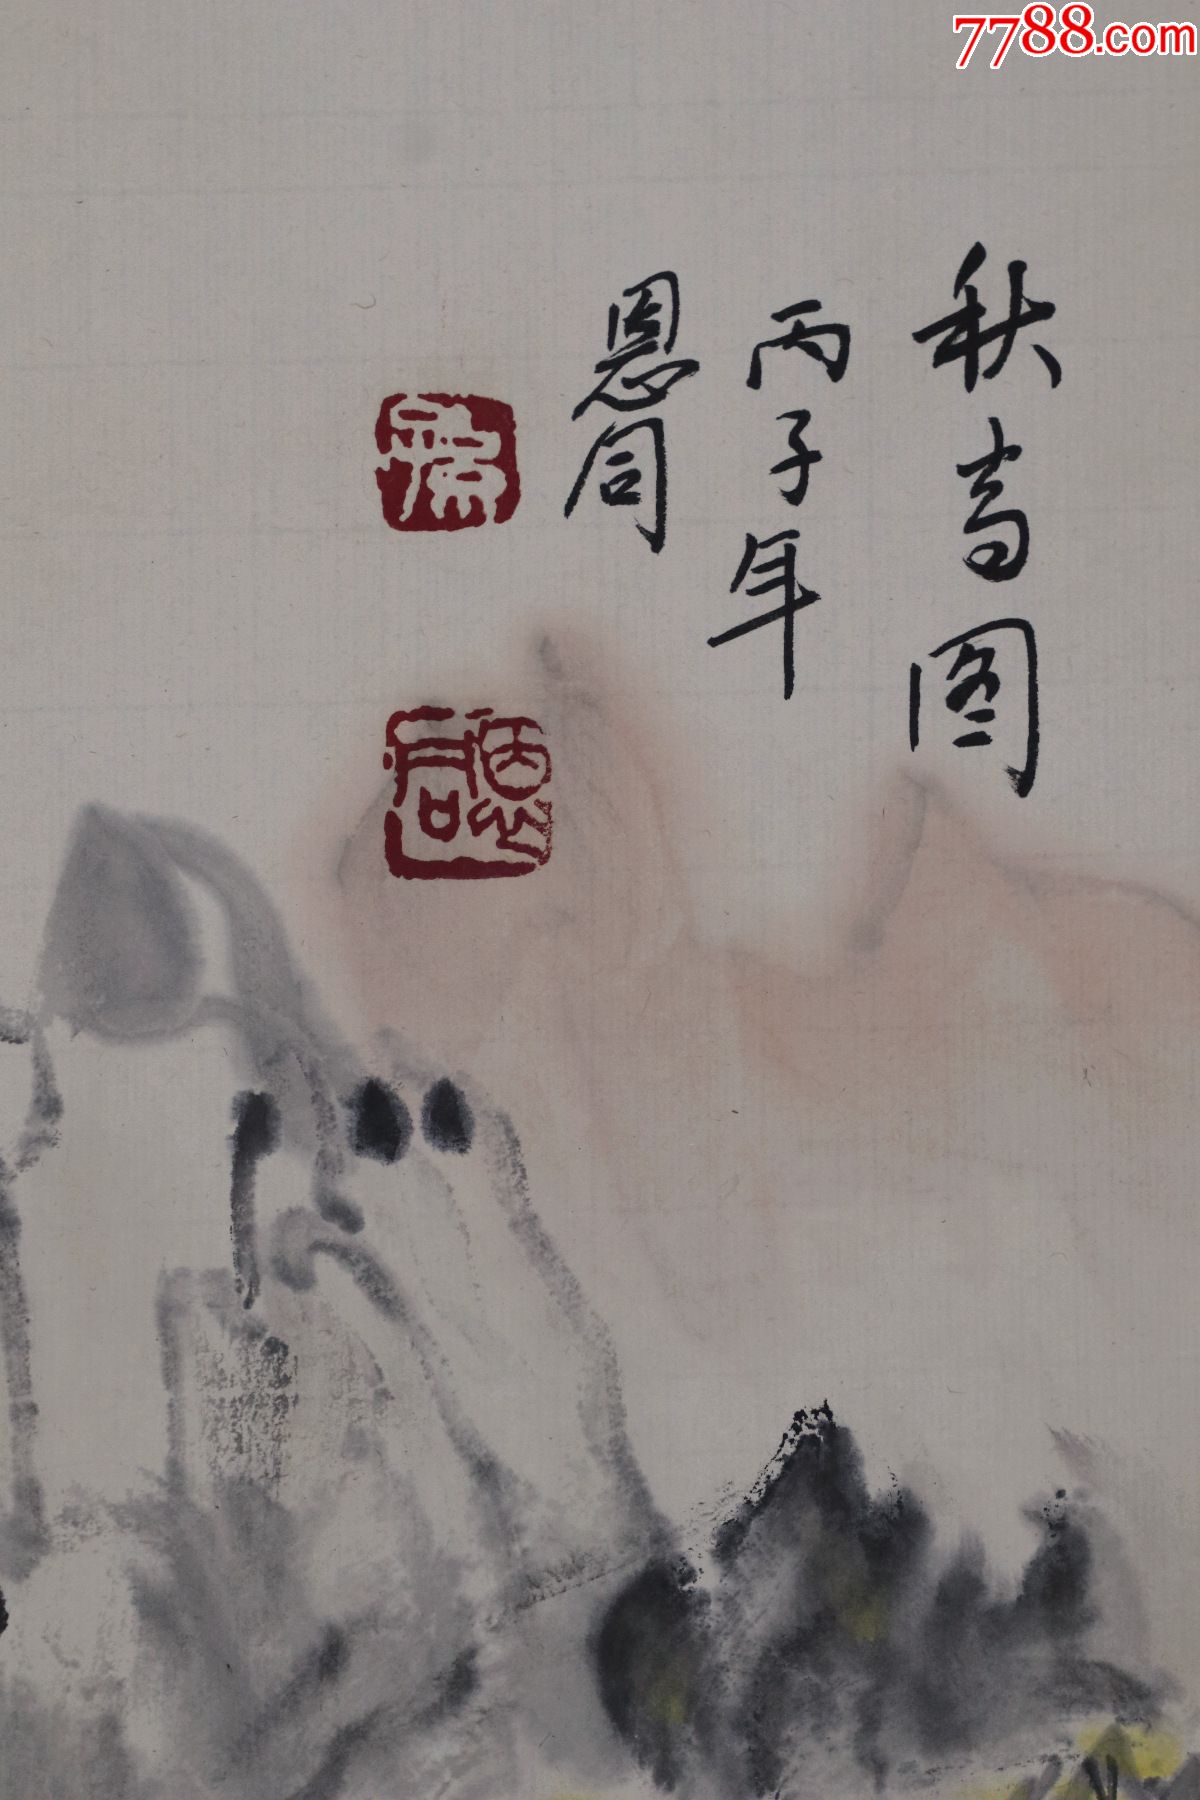 7788.com
秋高图
丙子年
恩同
孫
恩同